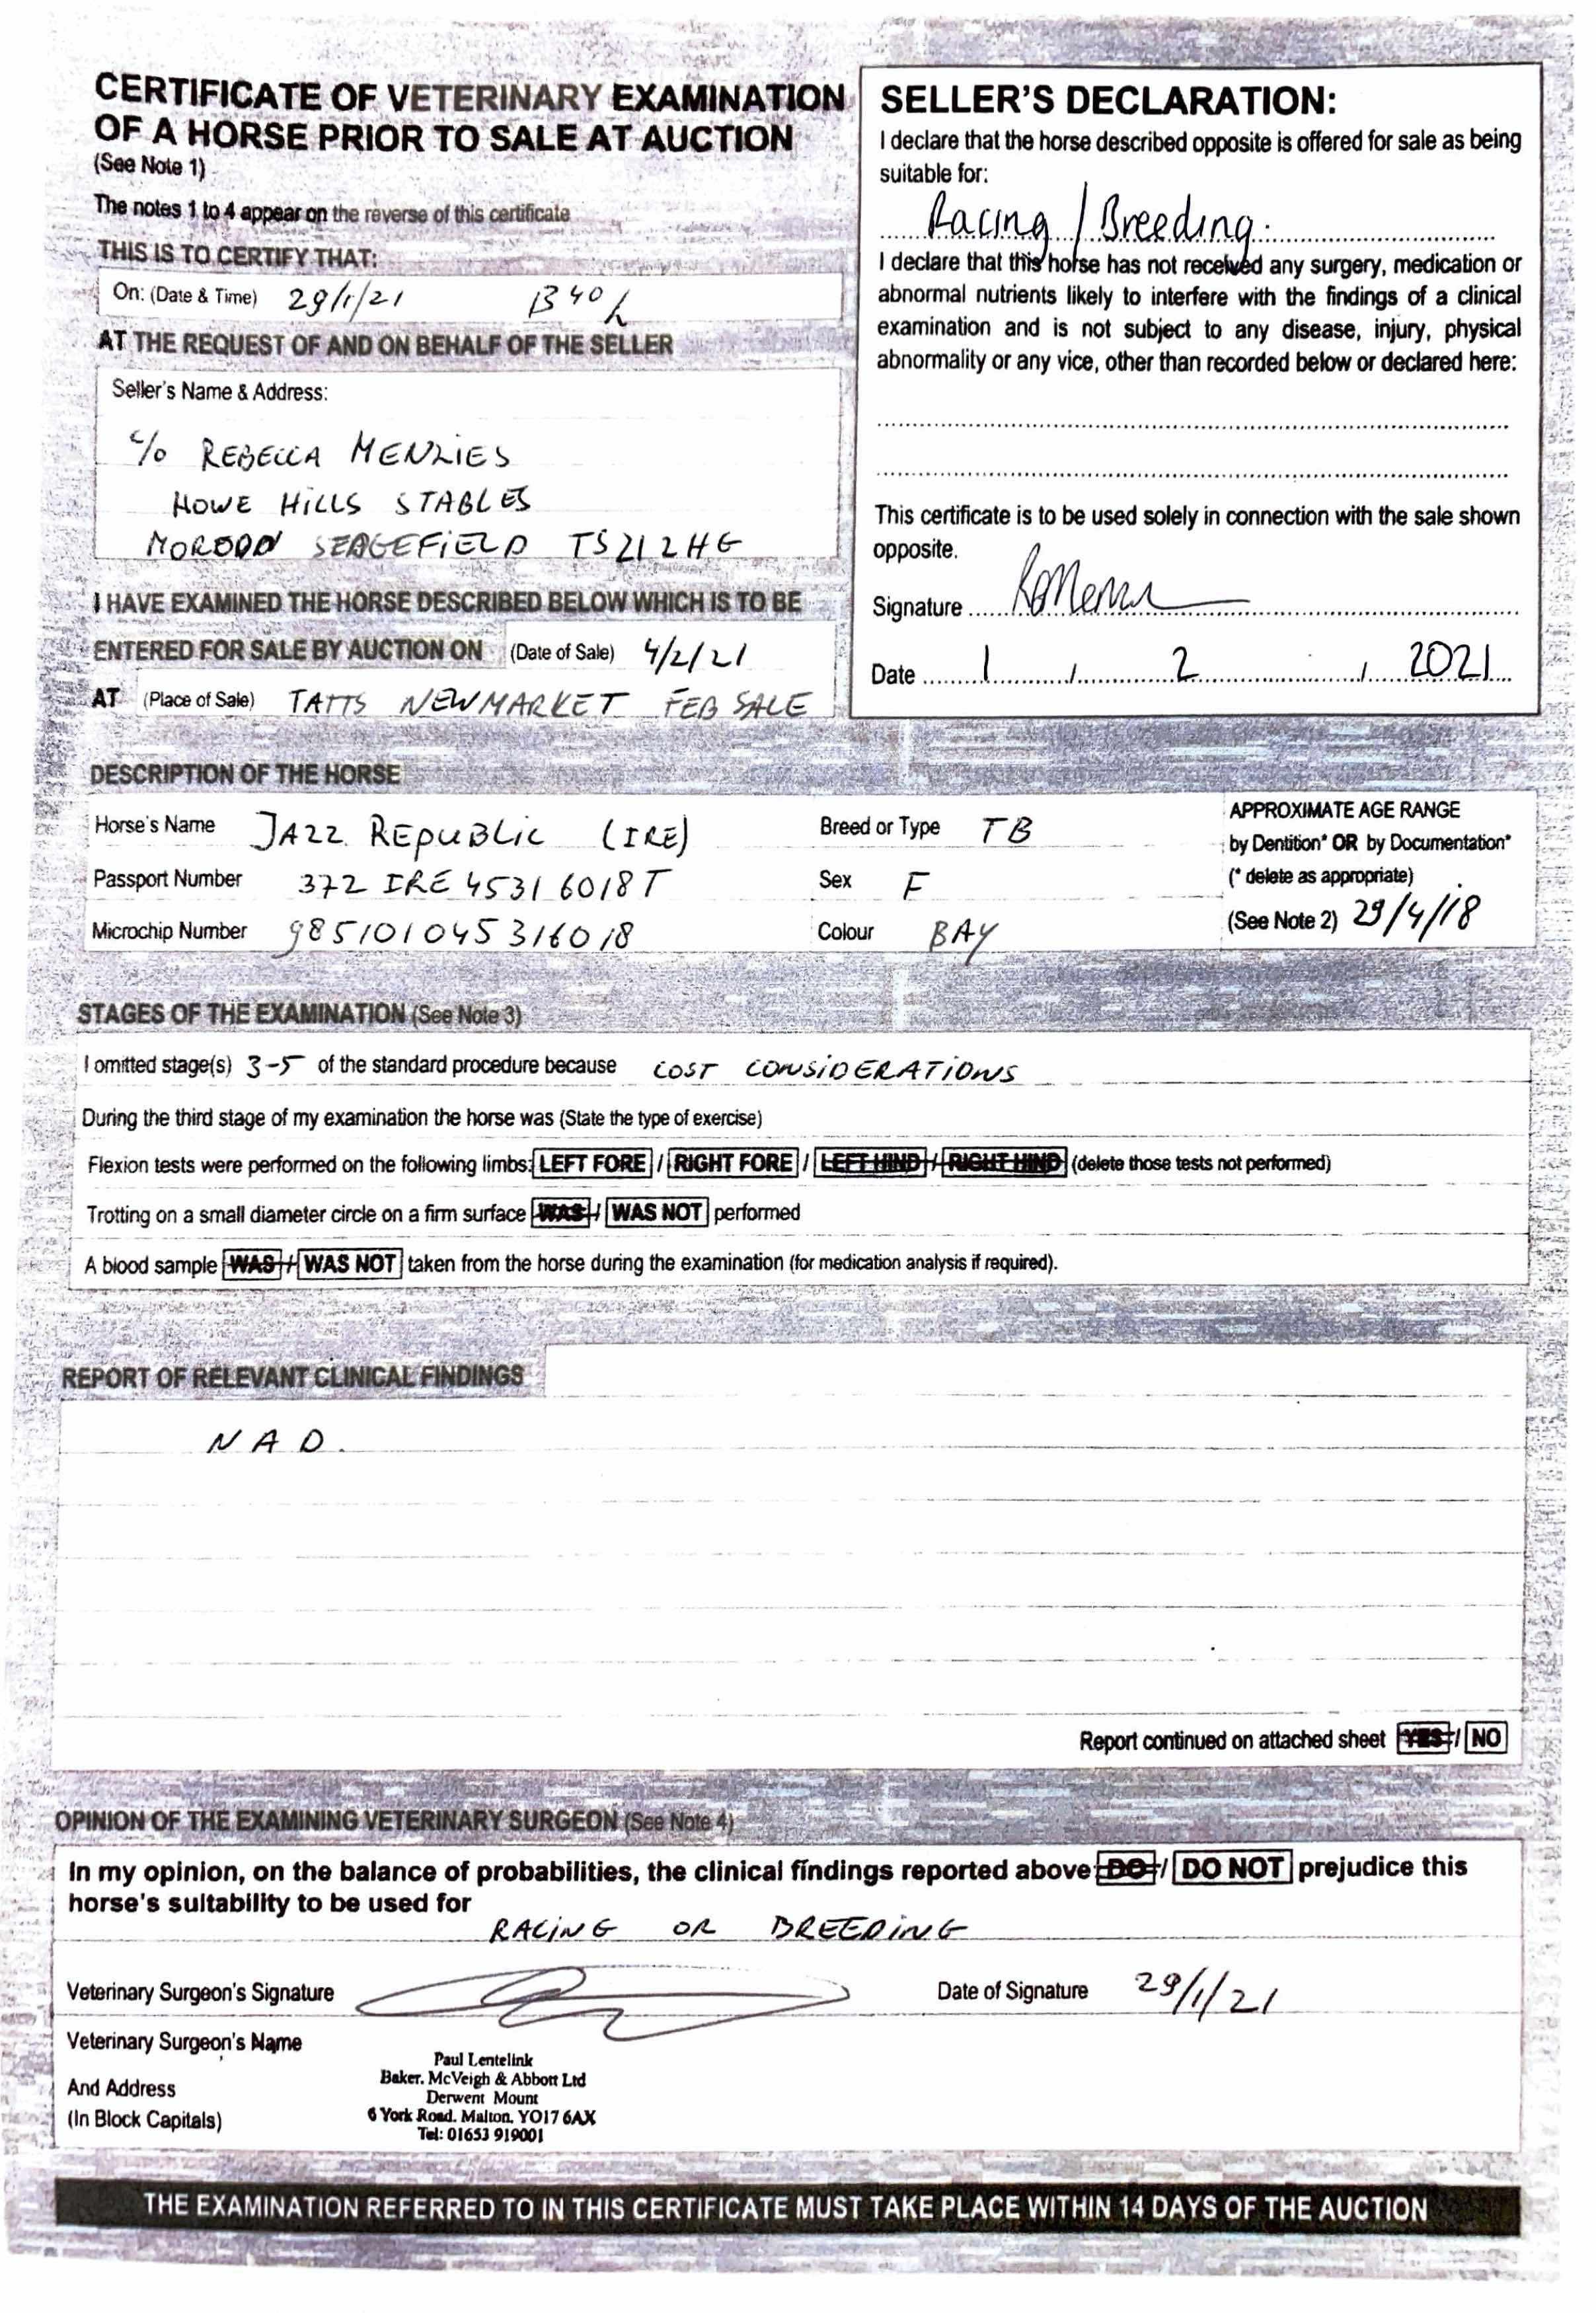 CERTIFICATE OF VETERINARY EXAMINATION
OF A HORSE PRIOR TO SALE AT AUCTION
(See Note 1)
The notes 1 to 4 appear on the reverse of this certificate
THIS IS TO CERTIFY THAT:
On: (Date & Time) 29/1/21
AT THE REQUEST OF AND ON BEHALF OF THE SELLER
Seller's Name & Address:
c/o REBECCA MENZIES
HOWE HILLS STABLES
MORDON SEDGEFIELD TS21 2HG
I HAVE EXAMINED THE HORSE DESCRIBED BELOW WHICH IS TO BE
ENTERED FOR SALE BY AUCTION ON (Date of Sale) 4/2/21
AT (Place of Sale) TATTS NEWMARKET FEB SALE
SELLER'S DECLARATION:
I declare that the horse described opposite is offered for sale as being
suitable for:
Racing / Breeding.
I declare that this horse has not received any surgery, medication or
abnormal nutrients likely to interfere with the findings of a clinical
examination and is not subject to any disease, injury, physical
abnormality or any vice, other than recorded below or declared here:
This certificate is to be used solely in connection with the sale shown
opposite.
Signature
Date 1 / 2 / 2021
DESCRIPTION OF THE HORSE
Horse's Name JAZZ REPUBLIC (IRE) Breed or Type TB
Passport Number 372 IRE 45316018T Sex F
Microchip Number 985101045316018 Colour BAY
APPROXIMATE AGE RANGE
by Dentition* OR by Documentation*
(* delete as appropriate)
(See Note 2) 29/4/18
STAGES OF THE EXAMINATION (See Note 3)
I omitted stage(s) 3-5 of the standard procedure because COST CONSIDERATIONS
During the third stage of my examination the horse was (State the type of exercise)
Flexion tests were performed on the following limbs: LEFT FORE / RIGHT FORE / LEFT HIND / RIGHT HIND (delete those tests not performed)
Trotting on a small diameter circle on a firm surface WAS / WAS NOT performed
A blood sample WAS / WAS NOT taken from the horse during the examination (for medication analysis if required).
REPORT OF RELEVANT CLINICAL FINDINGS
NAD.
Report continued on attached sheet YES / NO
OPINION OF THE EXAMINING VETERINARY SURGEON (See Note 4)
In my opinion, on the balance of probabilities, the clinical findings reported above DO / DO NOT prejudice this
horse's suitability to be used for
RACING OR BREEDING
Veterinary Surgeon's Signature Date of Signature 29/1/21
Veterinary Surgeon's Name
And Address
(In Block Capitals)
Paul Lentelink
Baker. McVeigh & Abbott Ltd
Derwent Mount
6 York Road. Malton. YO17 6AX
Tel: 01653 919001
THE EXAMINATION REFERRED TO IN THIS CERTIFICATE MUST TAKE PLACE WITHIN 14 DAYS OF THE AUCTION